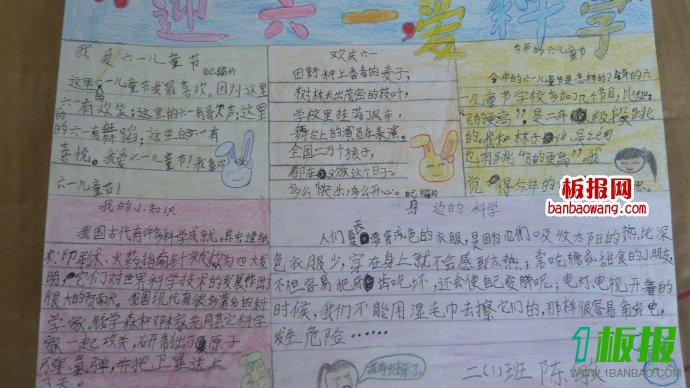 迎六一,爱科学
我爱六一儿童节
自己编的
这里六一儿童节我最喜欢,因为这里的
六一有欢笑;这里的六一有歌声;这里
的六一有舞蹈;这里的六一有
喜悦。我爱六一儿童节!我喜欢
六一儿童节!
欢庆六一
田野种上香香的麦子,
树林长出茂密的枝叶,
学校里挂满了风车,
舞台上的演员在表演。
全国二万个孩子,
都在欢这个日子。
多么快乐,多么开心。自己编的
今年的六一儿童节
今年的六一儿童节是怎样的?今年的六
一儿童节学校多加了几个节目,比如:
“飞的更高”是二年级段跳
的,我和林子
也有跳“飞的更高”哦
觉得今年的
思。
板报网
banbaowang.com
我的小知识
我国古代有许多科学成就。其中造纸
术、印刷术、火药、指南针被称为四大发
明,它们对世界科学技术的发展作出
很大的贡献。我国现代有很多著名的科
学家,钱学森和邓稼先同其它科学
家一起攻关,研制出了原子
弹、氢弹,并把卫星送上
了天。
身边的科学
人们夏天喜穿浅色的衣服,是因为它们吸收太阳的热比深
色衣服少,穿在身上就不会感到太热;常吃糖或甜食的小朋友,
不但容易把牙齿吃坏,还会使自己变胖呢;电灯、电视开着的
时候,我们不能用湿毛巾去擦它们的,那样很容易角虫电,
发生危险……
二(1)班 陈
1板报
WWW.1BANBAO.COM